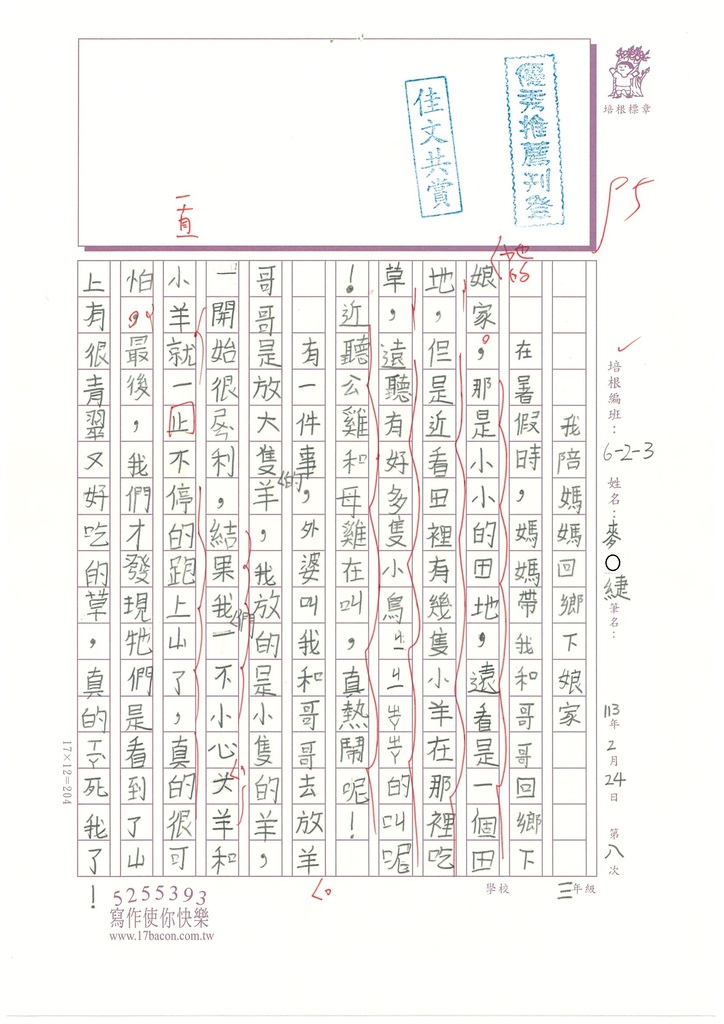 培根標章
優秀推薦刊登
佳文共賞
P5
一直
培根編班：6-2-3 姓名：麥○緁 筆名： 113年2月24日 第八次
我陪媽媽回鄉下娘家
在暑假時，媽媽帶我和哥哥回鄉下
她的
娘家，那是小小的田地，遠看是一個田
地，但是近看田裡有幾隻小羊在那裡吃
草，遠聽有好多隻小鳥ㄓㄓㄓㄓ的叫呢
！近聽公雞和母雞在叫，真熱鬧呢！
有一件事，外婆叫我和哥哥去放羊
哥哥是放大隻羊，我放的是小隻的羊，
的
一開始很利，結果我一不小心犬羊和
們
小羊就一止不停的跑上山了，真的很可
怕，最後，我們才發現牠們是看到了山
上有很青翠又好吃的草，真的死我了！
三年級
學校
17×12=204
5255393
寫作使你快樂
www.17bacon.com.tw